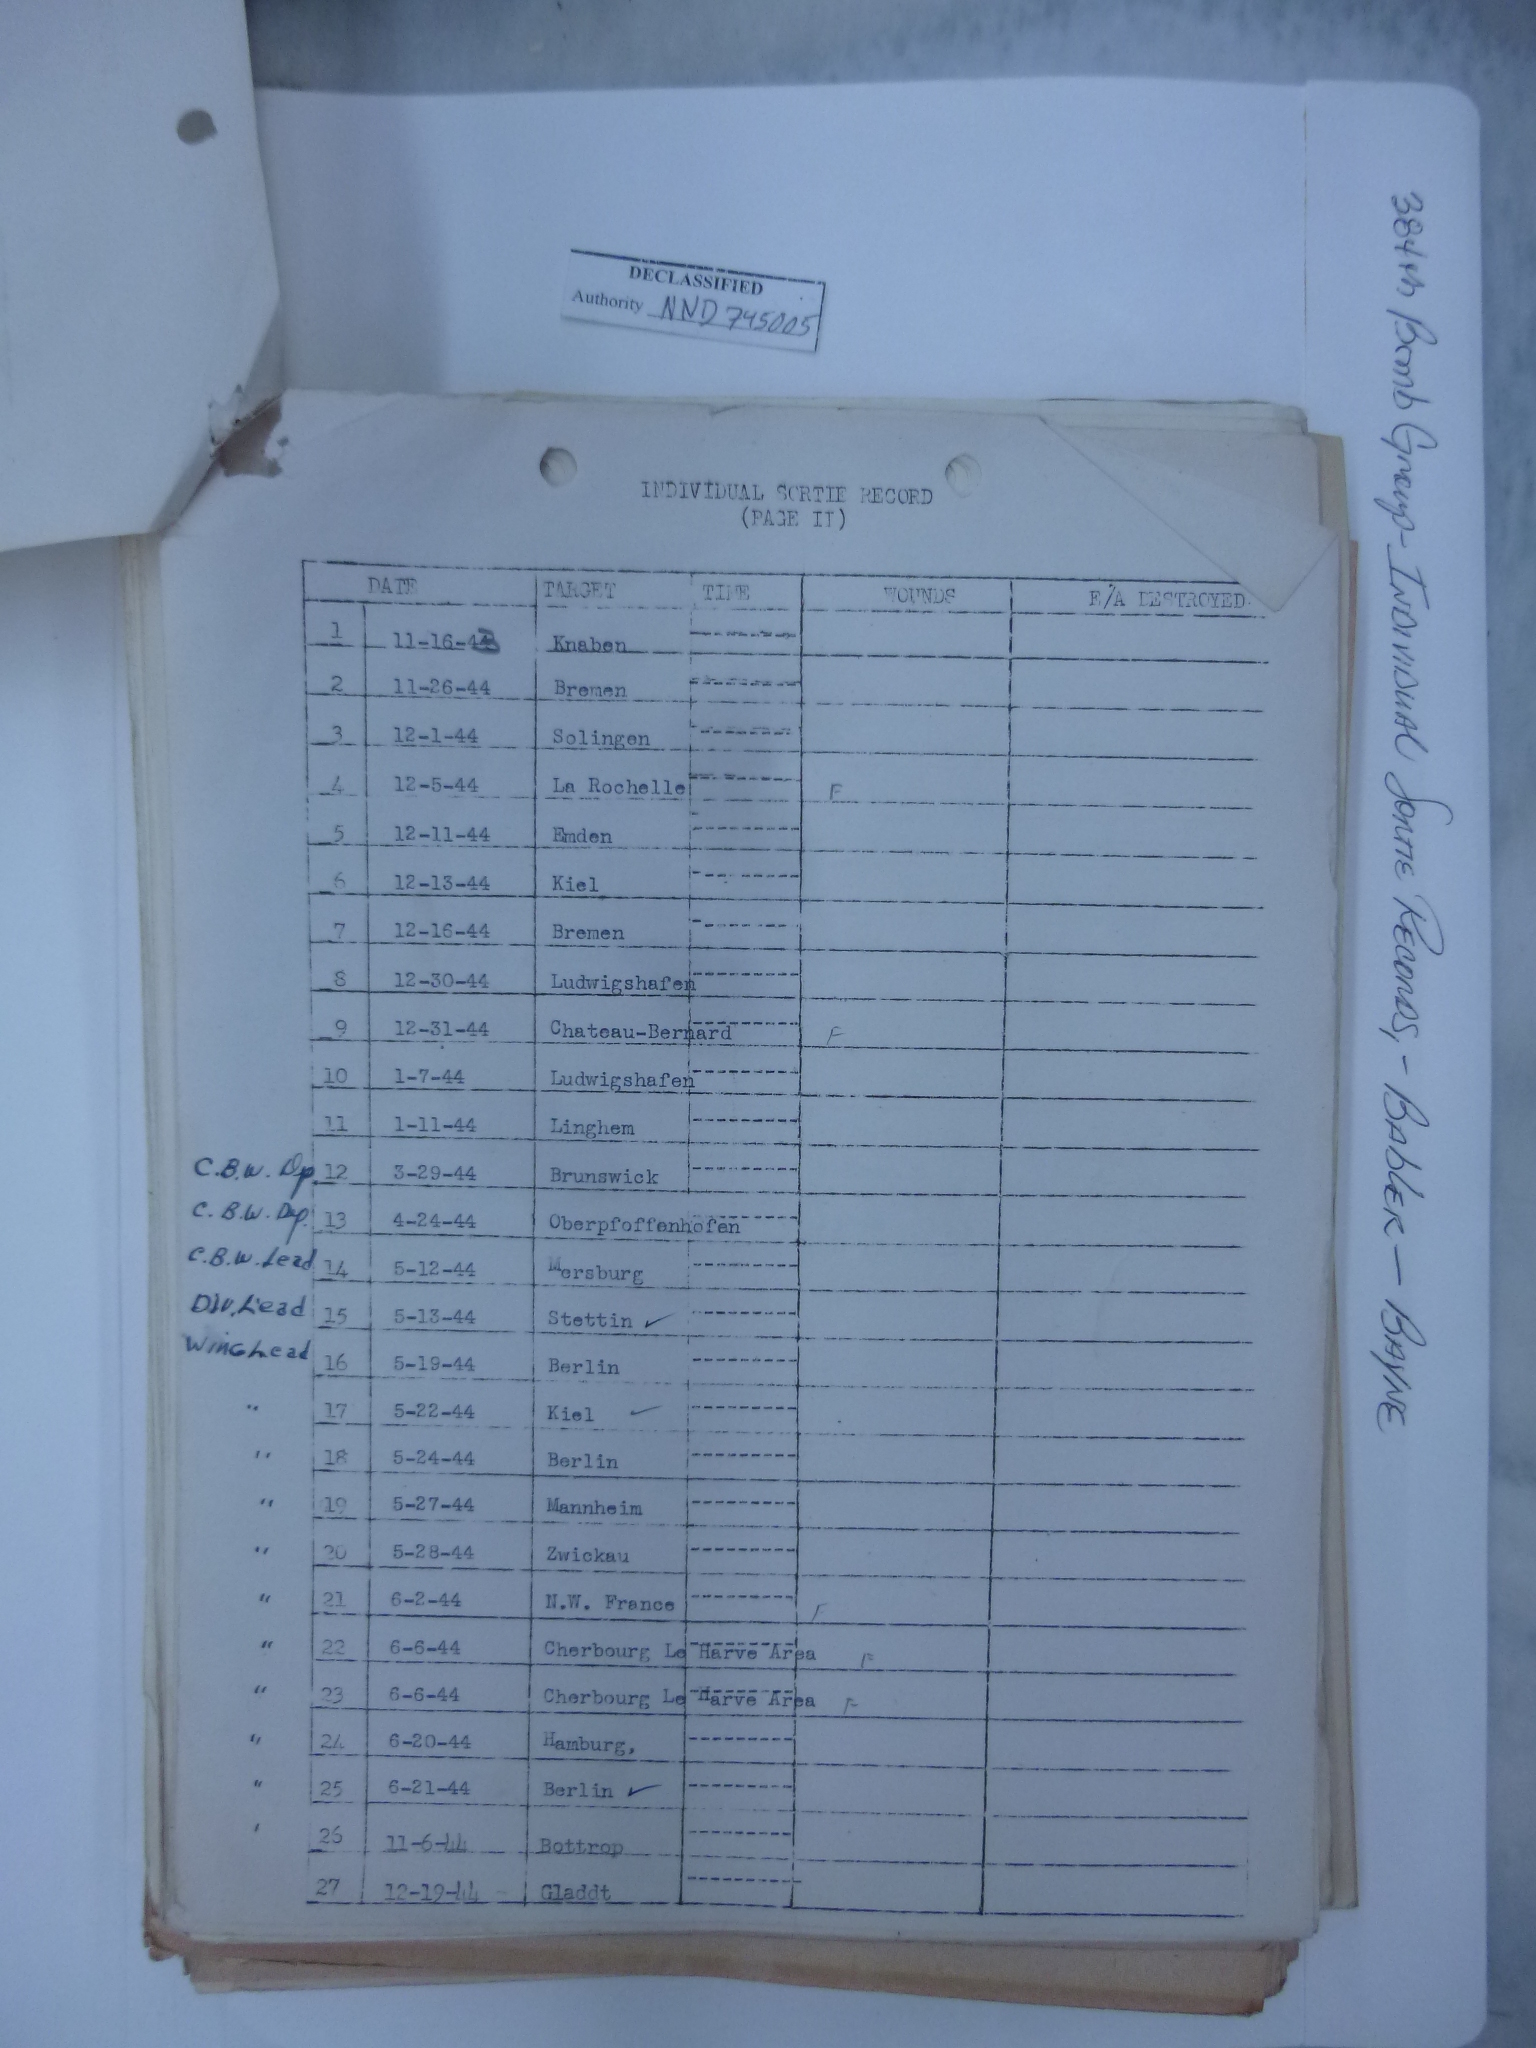 DECLASSIFIED
Authority NND 745005
384th Bomb Group - Individual Sortie Records, - Babler — Bayne
INDIVIDUAL SORTIE RECORD
(PAGE II)
DATE TARGET TIME WOUNDS E/A DESTROYED
1 11-16-43 Knaben -------
2 11-26-44 Bremen -------
3 12-1-44 Solingen -------
4 12-5-44 La Rochelle ------- F
5 12-11-44 Emden -------
6 12-13-44 Kiel -------
7 12-16-44 Bremen -------
8 12-30-44 Ludwigshafen -------
9 12-31-44 Chateau-Bernard ------- F
10 1-7-44 Ludwigshafen -------
11 1-11-44 Linghem -------
C.B.W. Dp 12 3-29-44 Brunswick -------
C.B.W. Dep. 13 4-24-44 Oberpfoffenhofen -------
C.B.W. Lead 14 5-12-44 Mersburg -------
Div. Lead 15 5-13-44 Stettin ✓ -------
Wing Lead 16 5-19-44 Berlin -------
" 17 5-22-44 Kiel ✓ -------
" 18 5-24-44 Berlin -------
" 19 5-27-44 Mannheim -------
" 20 5-28-44 Zwickau -------
" 21 6-2-44 N.W. France ------- F
" 22 6-6-44 Cherbourg Le Harve Area ------- F
" 23 6-6-44 Cherbourg Le Harve Area ------- F
" 24 6-20-44 Hamburg, -------
" 25 6-21-44 Berlin ✓ -------
' 26 11-6-44 Bottrop -------
27 12-19-44 Gladdt -------